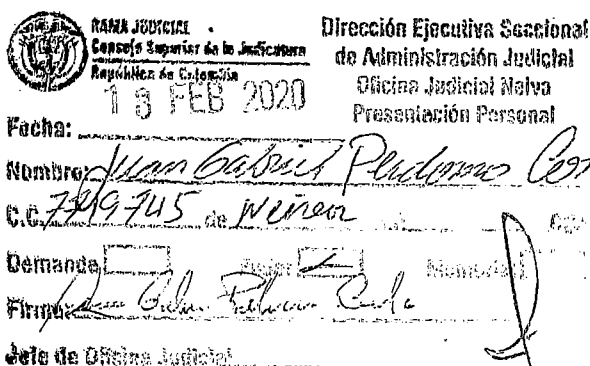 RAMA JUDICIAL
Consejo Superior de la Judicatura
República de Colombia
Dirección Ejecutiva Seccional
de Administración Judicial
Oficina Judicial Neiva
Presentación Personal
FEB 2020
Fecha:
Nombre: Juan Gabriel Perdomo
C.C. de Neiva
Demanda Poder Memorial
Firma:
Jefe de Oficina Judicial